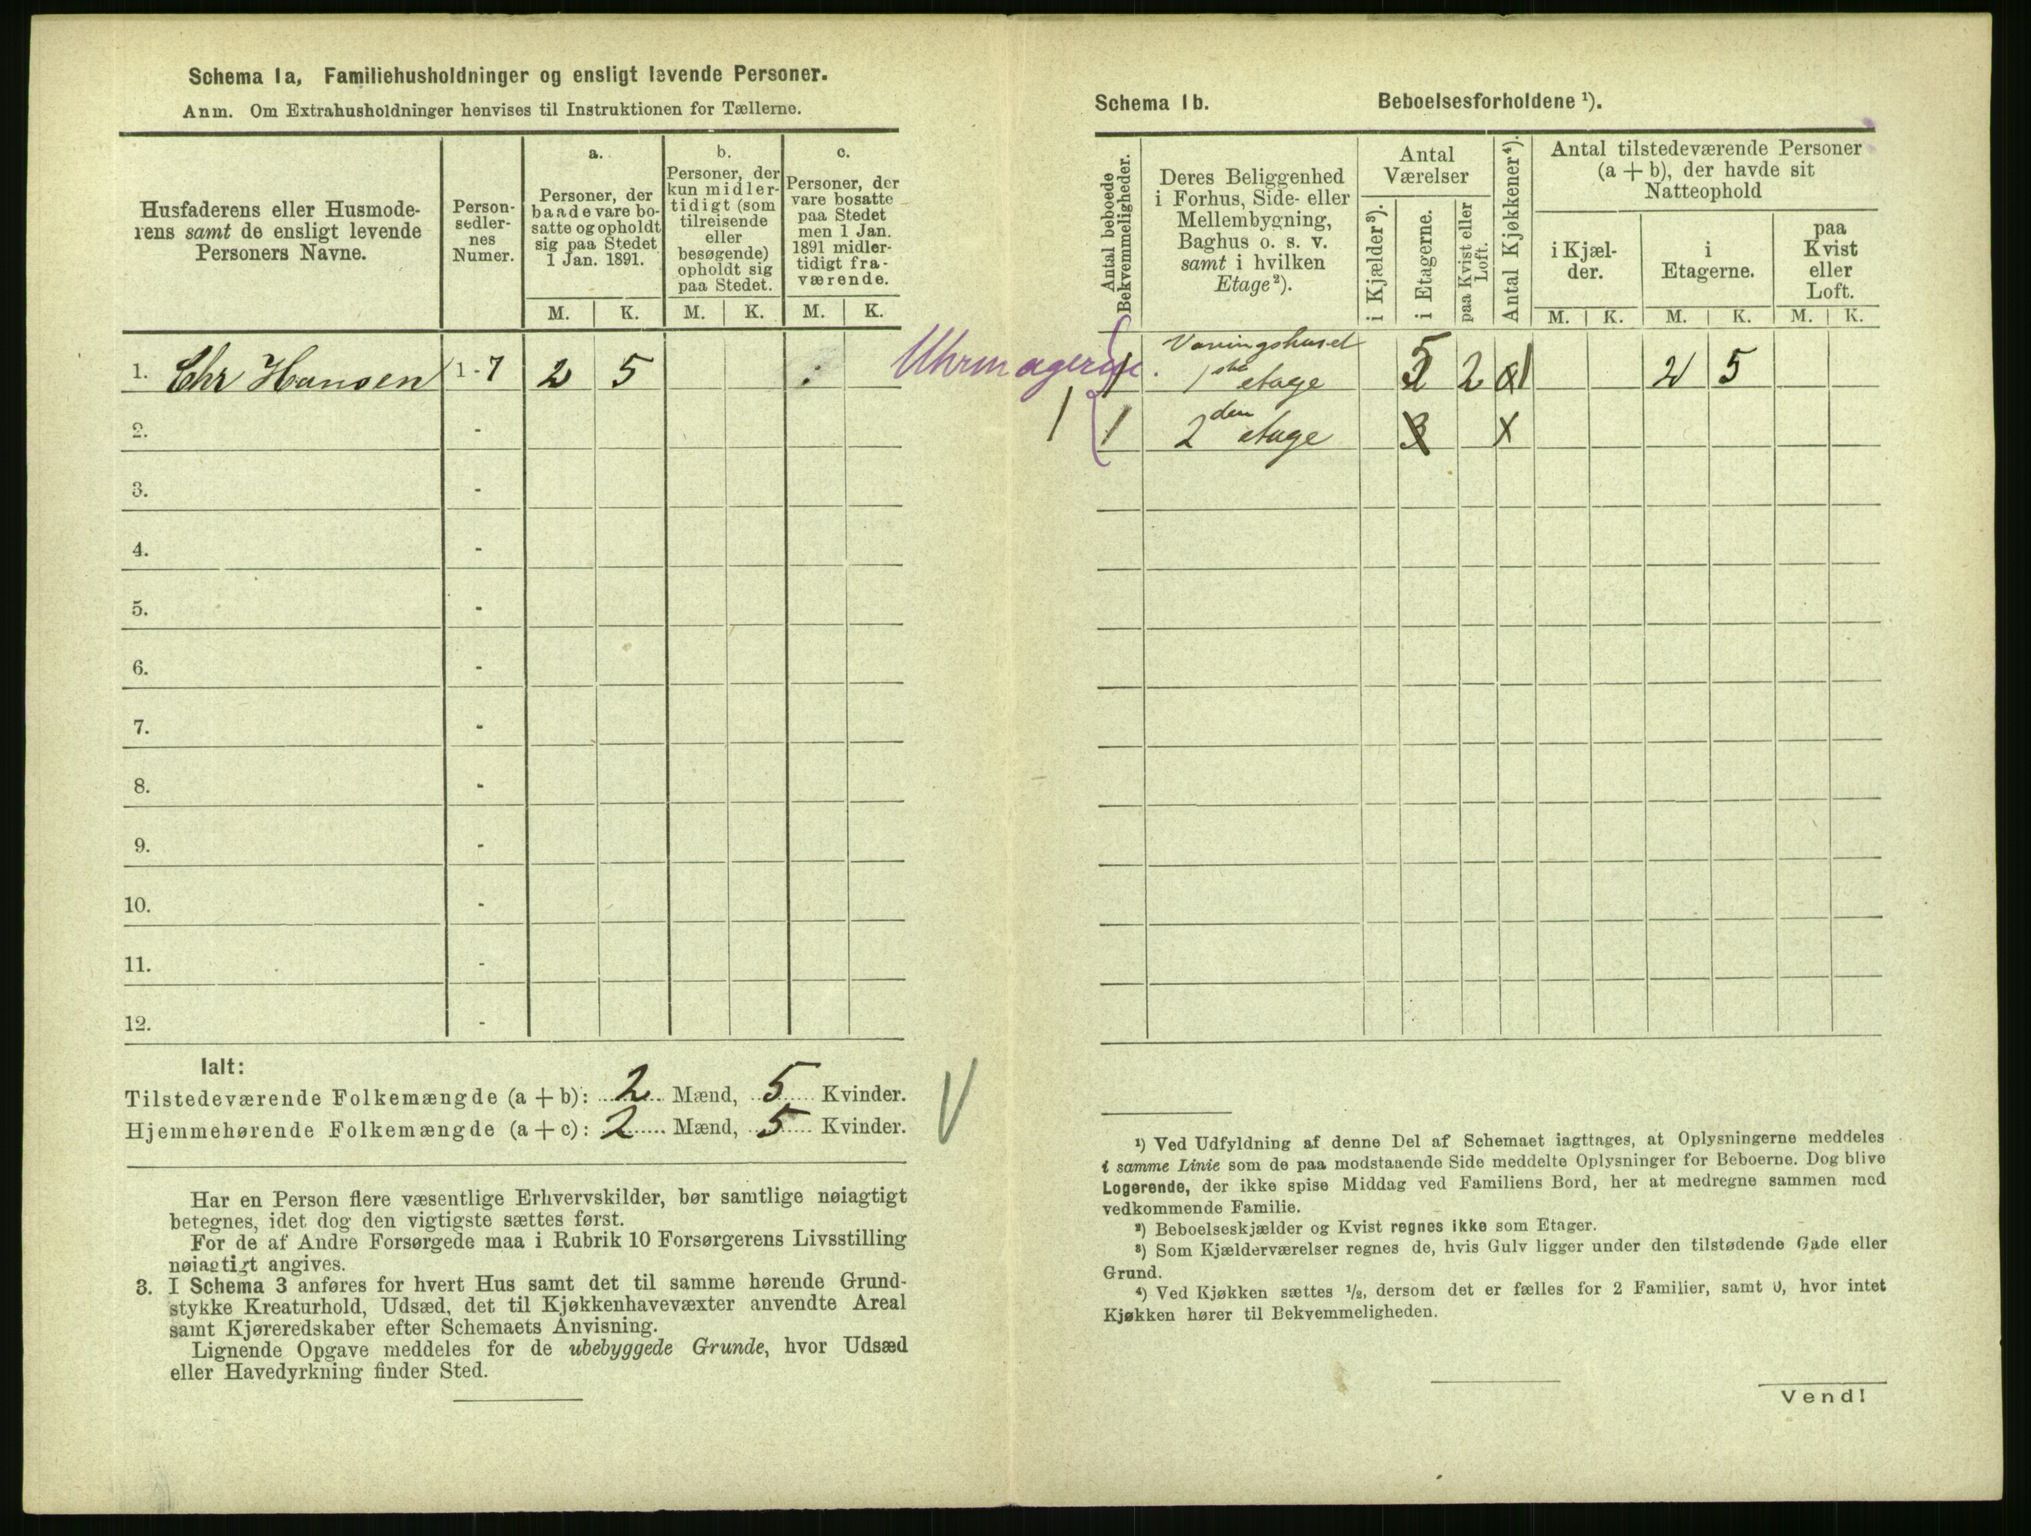 Schema 1a, Familiehusholdninger og ensligt levende Personer.
Anm. Om Extrahusholdninger henvises til Instruktionen for Tællerne.
Husfaderens eller Husmode-
rens samt de ensligt levende
Personers Navne.
Person-
sedler-
nes
Numer.
a.
Personer, der
baade vare bo-
satte og opholdt
sig paa Stedet
1 Jan. 1891.
b.
Personer, der
kun midler-
tidigt (som
tilreisende
eller
besøgende)
opholdt sig
paa Stedet.
c.
Personer, der
vare bosatte
paa Stedet
men 1 Jan.
1891 midler-
tidigt fra-
værende.
M. K. M. K. M. K.
1. Chr Hansen 1-7 2 5
2. -
3. -
4. -
5. -
6. -
7. -
8. -
9. -
10. -
11. -
12. -
Ialt:
Tilstedeværende Folkemængde (a + b): 2 Mænd, 5 Kvinder.
Hjemmehørende Folkemængde (a + c): 2 Mænd, 5 Kvinder.
V
Har en Person flere væsentlige Erhvervskilder, bør samtlige nøiagtigt
betegnes, idet dog den vigtigste sættes først.
For de af Andre Forsørgede maa i Rubrik 10 Forsørgerens Livsstilling
nøiagtigt angives.
3. I Schema 3 anføres for hvert Hus samt det til samme hørende Grund-
stykke Kreaturhold, Udsæd, det til Kjøkkenhavevæxter anvendte Areal
samt Kjøreredskaber efter Schemaets Anvisning.
Lignende Opgave meddeles for de ubebyggede Grunde, hvor Udsæd
eller Havedyrkning finder Sted.
Schema 1b. Beboelsesforholdene ¹).
Antal beboede
Bekvemmeligheder.
Deres Beliggenhed
i Forhus, Side- eller
Mellembygning,
Baghus o. s. v.
samt i hvilken
Etage²).
Antal
Værelser
i Kjælder³).
i Etagerne.
paa Kvist eller
Loft.
Antal Kjøkkener⁴).
Antal tilstedeværende Personer
(a + b), der havde sit
Natteophold
i Kjæl-
der.
i
Etagerne.
paa
Kvist
eller
Loft.
M. K. M. K. M. K.
Vaaningshuset
1 1ste etage 5 2 1 2 5
1 1 2den etage 3 x
¹) Ved Udfyldning af denne Del af Schemaet iagttages, at Oplysningerne meddeles
i samme Linie som de paa modstaaende Side meddelte Oplysninger for Beboerne. Dog blive
Logerende, der ikke spise Middag ved Familiens Bord, her at medregne sammen med
vedkommende Familie.
²) Beboelseskjælder og Kvist regnes ikke som Etager.
³) Som Kjælderværelser regnes de, hvis Gulv ligger under den tilstødende Gade eller
Grund.
⁴) Ved Kjøkken sættes ½, dersom det er fælles for 2 Familier, samt 0, hvor intet
Kjøkken hører til Bekvemmeligheden.
Vend!